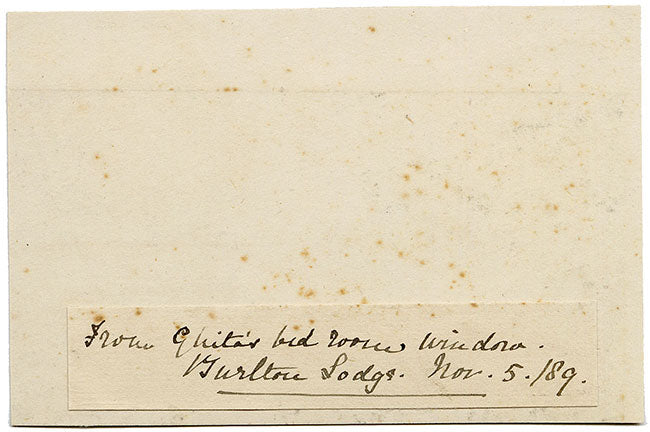 From Ghita's bed room window.
Burlton Lodge. Nov. 5. /89.